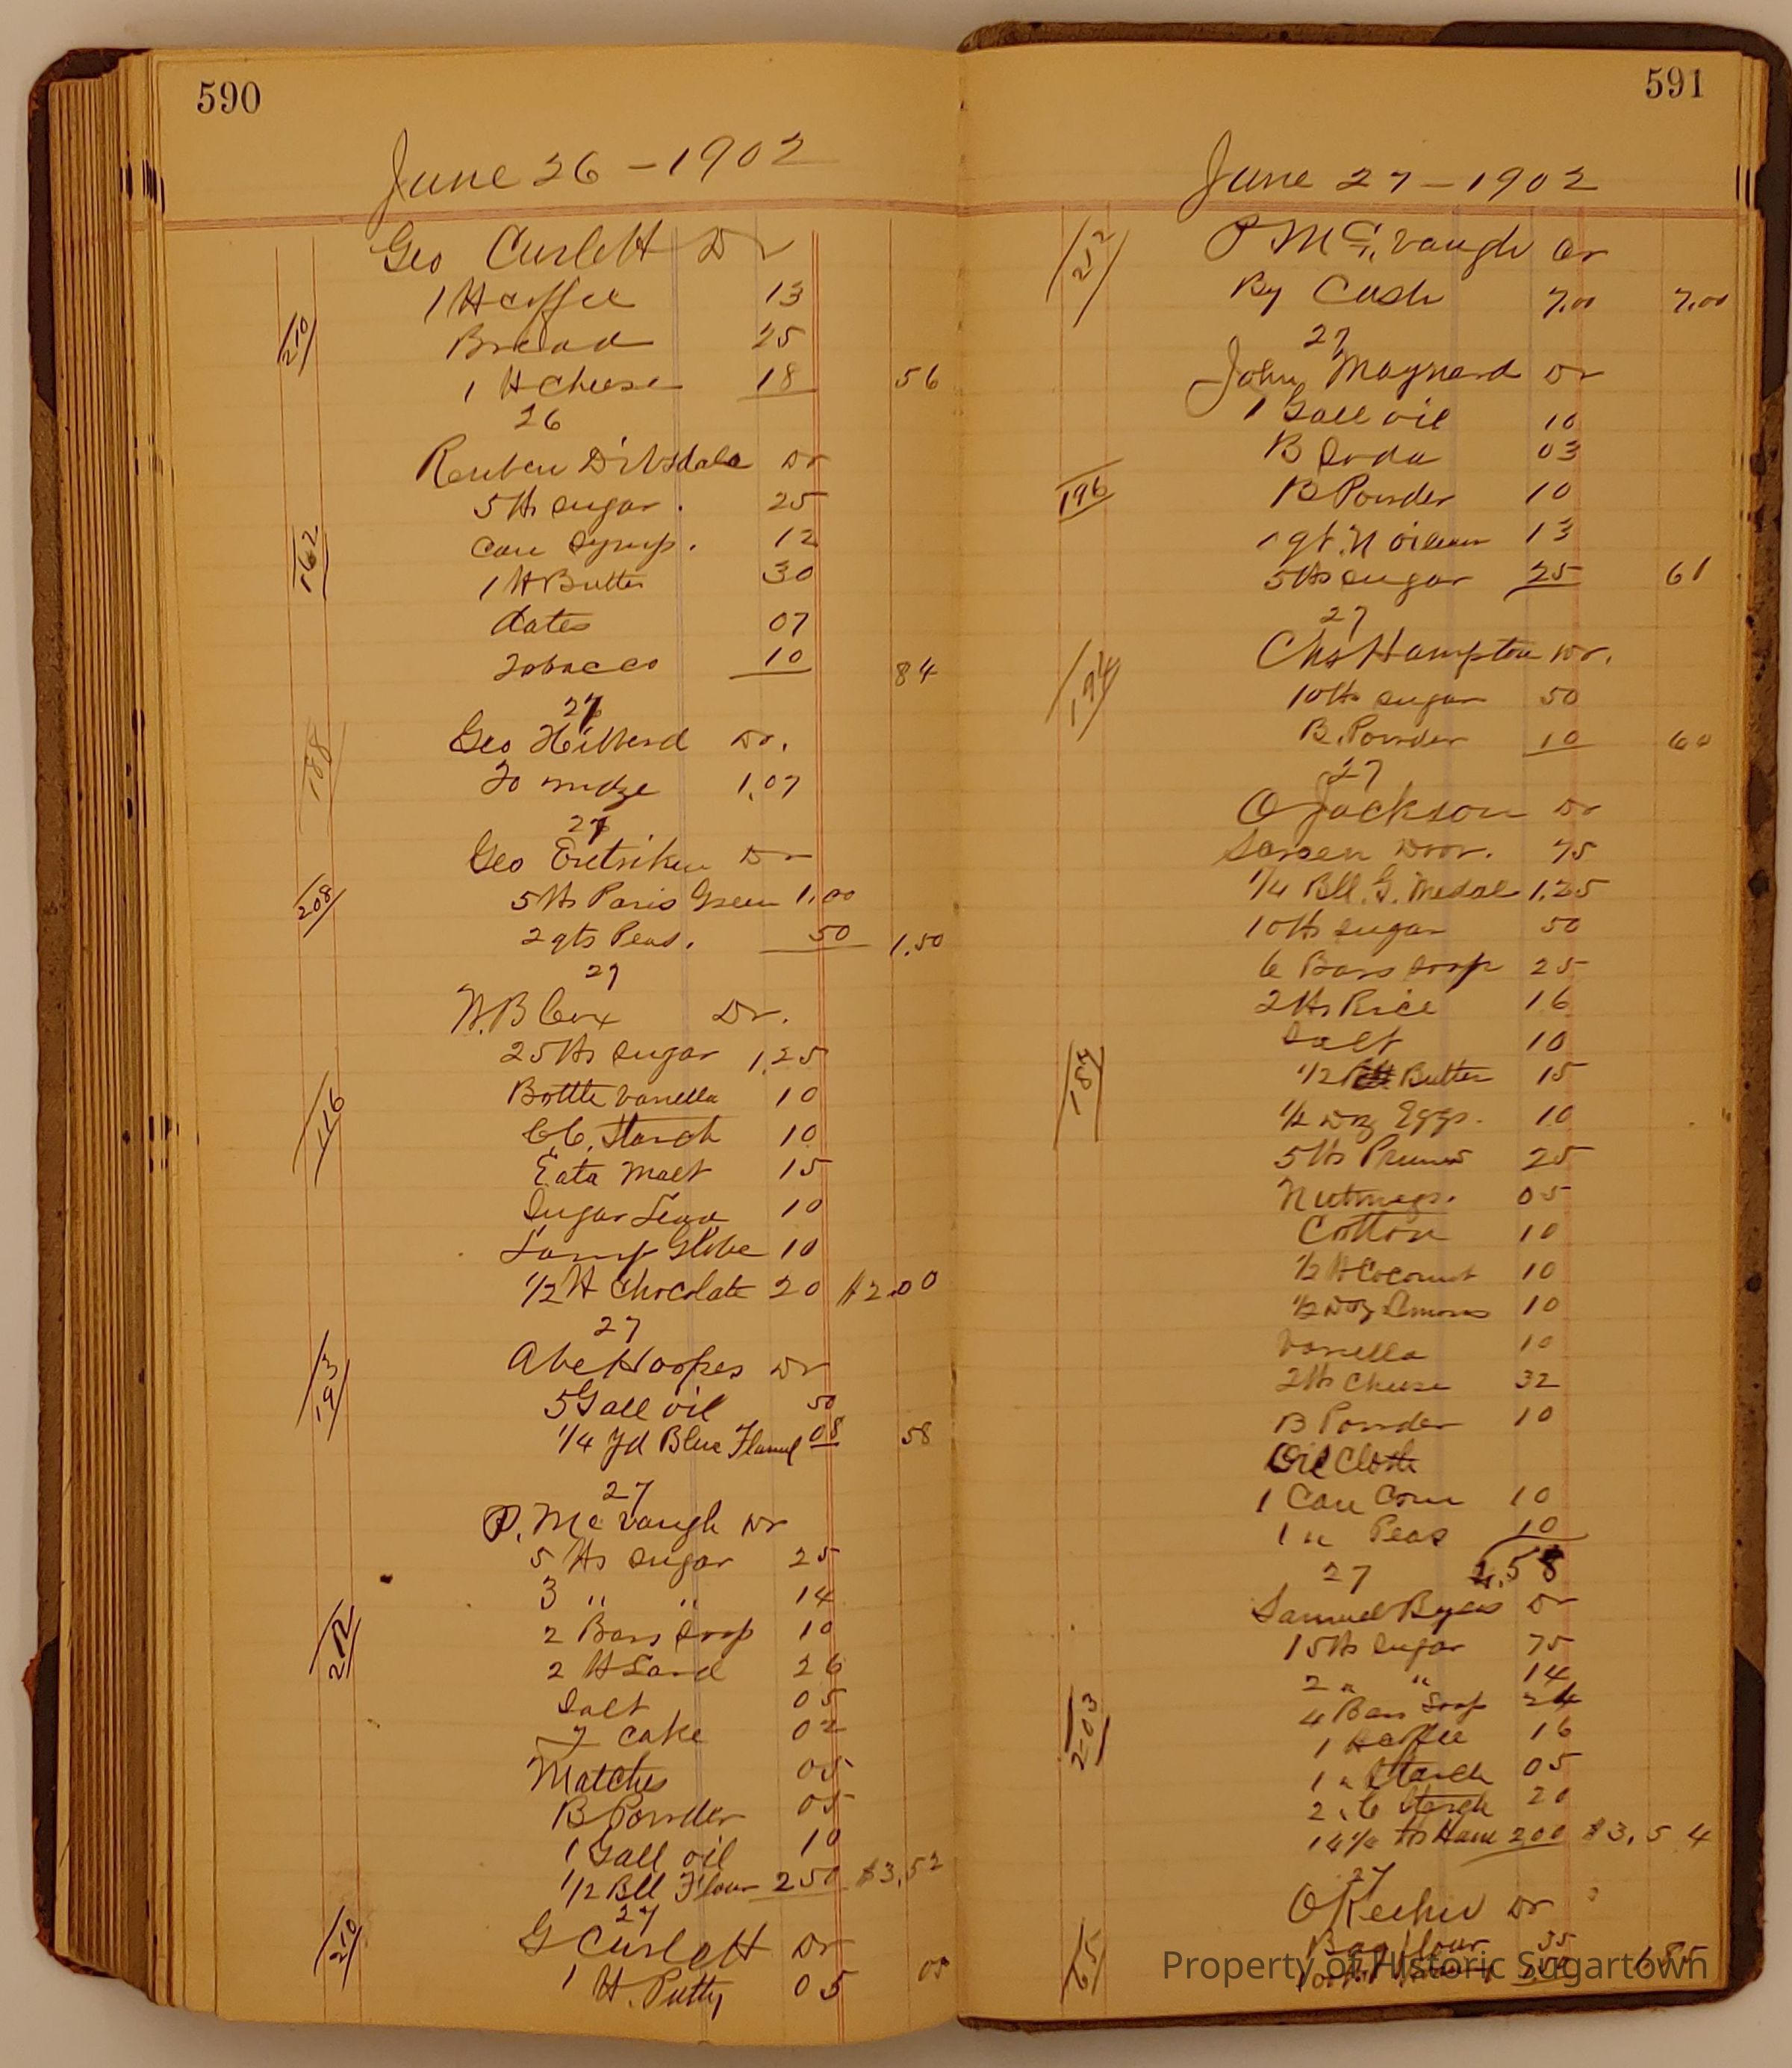 590
June 26 - 1902
Geo Curlett Dr
1 lb coffee 13
Bread 25
1 lb Cheese 18 56
210
26
Reuben Dr
5 lbs sugar . 25
can syrup . 12
1 lb Butter 30
dates 07
Tobacco 10 84
162
27
Geo Dr.
To mdze 1.07
188
27
Geo Entriken Dr
5 lbs Paris Green 1.00
2 qts Peas. 50 1.50
208
27
W.B Cox Dr.
25 lbs sugar 1.25
Bottle vanella 10
C.C. Starch 10
Eata Malt 15
Sugar 10
Lamp Globe 10
1/2 lb Chocolate 20 $2.00
116
27
Abe Hoopes Dr
5 Gall oil 50
1/4 yd Blue Flannel 08 58
193
27
P. Mc Vaugh Dr
5 lbs sugar 25
3 " " 14
2 Bars soap 10
2 lb Lard 26
Salt 05
Y cake 02
Matches 05
B Powder 05
1 Gall oil 10
1/2 Bll Flour 250 $3.52
212
27
G Curlett Dr
1 lb. Putty 05 05
210
591
June 27 - 1902
P Mc Vaugh Cr
By Cash 7.00 7.00
212
27
John Maynard Dr
1 Gall oil 10
B Soda 03
B Powder 10
1 qt. N 13
5 lbs sugar 25 61
196
27
Chs Hampton Dr.
10 lbs sugar 50
B. Powder 10 60
194
27
O Jackson Dr
Door. 75
1/4 Bll. G. Medal 1.25
10 lbs sugar 50
6 Bars soap 25
2 lbs Rice 16
Salt 10
1/2 Butter 15
1/2 Doz Eggs. 10
5 lbs Prunes 25
Nutmegs. 05
Cotton 10
1/2 lb Cocoanut 10
1/2 Doz Lemons 10
Vanella 10
2 lbs Cheese 32
B Powder 10
Oil Cloth
1 Can Corn 10
1 " Peas 10
4.58
27
Samuel Byers Dr
15 lbs sugar 75
2 " " 14
4 Bars Soap 24
1 lb coffee 16
1 " Starch 05
2 " C Starch 20
14 1/2 lbs Ham 200 $3.54
203
27
O Keehn Dr
Bag flour 35
65
Property of Historic Sugartown